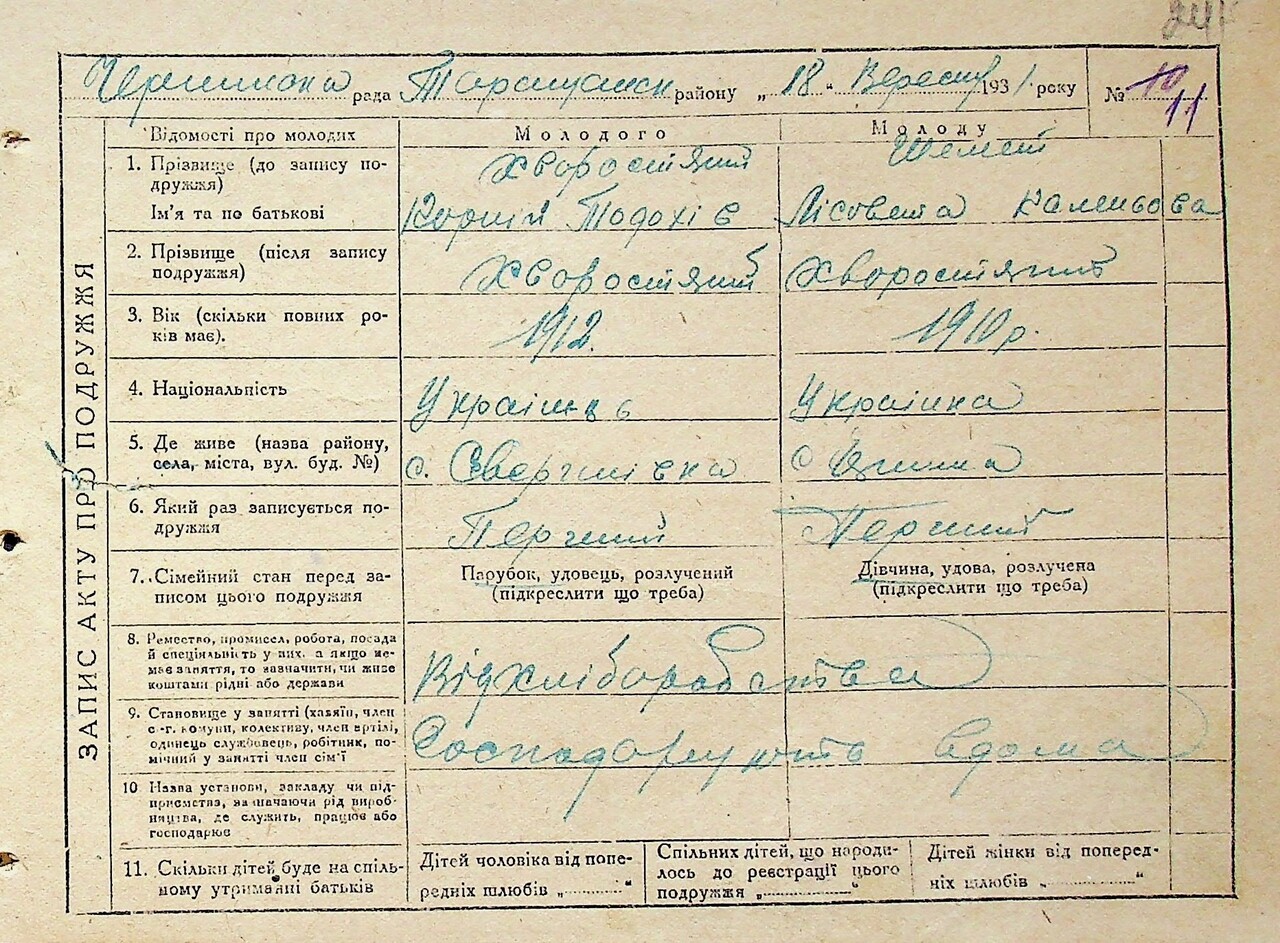 рада Таращанськ району „ 18 " Вересня 1931 року № 10 11
ЗАПИС АКТУ ПРО ПОДРУЖЖЯ
Відомості про молодих
Молодого
Молоду
1. Прізвище (до запису по-
дружжя)
Хворостяний
Шемет
Ім'я та по батькові
Корній Тодохів
Лісовета
2. Прізвище (після запису
подружжя)
Хворостяний
Хворостяний
3. Вік (скільки повних ро-
ків має).
1912.
1910 р.
4. Національність
Українец
Українка
5. Де живе (назва району,
села, міста, вул. буд. №)
с.
с
6. Який раз записується по-
дружжя
Перший
Перший
7. Сімейний стан перед за-
писом цього подружжя
Парубок, удовець, розлучений
(підкреслити що треба)
Дівчина, удова, розлучена
(підкреслити що треба)
8. Ремество, промисел, робота, посада
й спеціяльність у них, а якщо не-
має заняття, то зазначити, чи живе
коштами рідні або держави
Від хліборобства
9. Становище у занятті (хазяїн, член
с.-г. комуни, колективу, член артілі,
одинець службовець, робітник, по-
мічний у занятті член сім'ї
Господорують вдома
10 Назва установи, закладу чи під-
приємства, зазначаючи рід вироб-
ництва, де служить, працює або
господарює
11. Скільки дітей буде на спіль-
ному утриманні батьків
Дітей чоловіка від попе-
редніх шлюбів „ "
Спільних дітей, що народи-
лось до реєстрації цього
подружжя „ "
Дітей жінки від поперед-
ніх шлюбів „ "